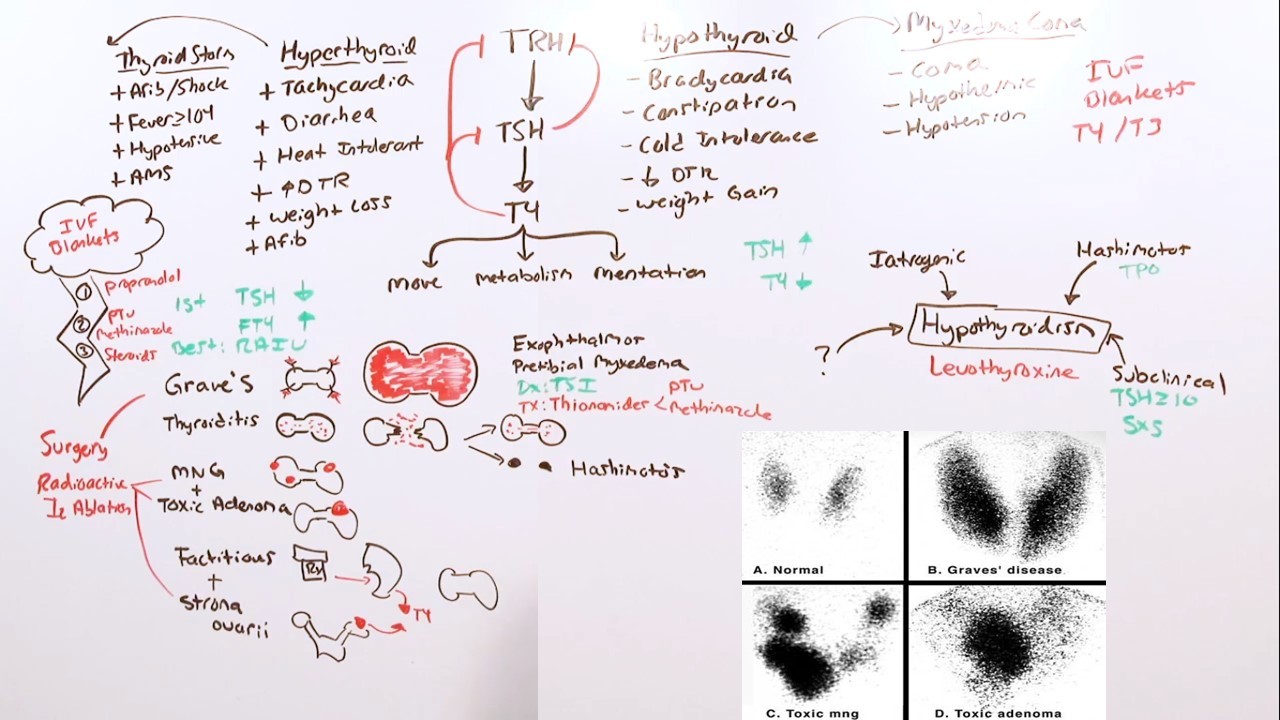 Thyroid Storm
+ Afib/Shock
+ Fever≥104
+ Hypotensive
+ AMS
IVF
Blankets
1 propranolol
2 PTU
Methimazole
3 Steroids
Hyperthyroid
+ Tachycardia
+ Diarrhea
+ Heat Intolerant
+ ↑DTR
+ Weight Loss
+ Afib
TRH
TSH
T4
move metabolism mentation
Hypothyroid
- Bradycardia
- Constipation
- Cold Intolerance
- ↓ DTR
- Weight Gain
Myxedema Coma
- Coma
- Hypothermic
- Hypotension
IVF
Blankets
T4/T3
1st TSH ↓
FT4 ↑
Best: RAIU
TSH ↑
T4 ↓
Iatrogenic
Hashimotos
TPO
?
Hypothyroidism
Levothyroxine
Subclinical
TSH≥10
Sxs
Grave's
Exophthalmos
Pretibial Myxedema
Dx: TSI
Tx: Thionamides < PTU
Methimazole
Thyroiditis
Hashimotos
Surgery
Radioactive
I2 Ablation
MNG
+
Toxic Adenoma
Factitious
+
Struma
ovarii
Rx
T4
A. Normal
B. Graves' disease
C. Toxic mng
D. Toxic adenoma